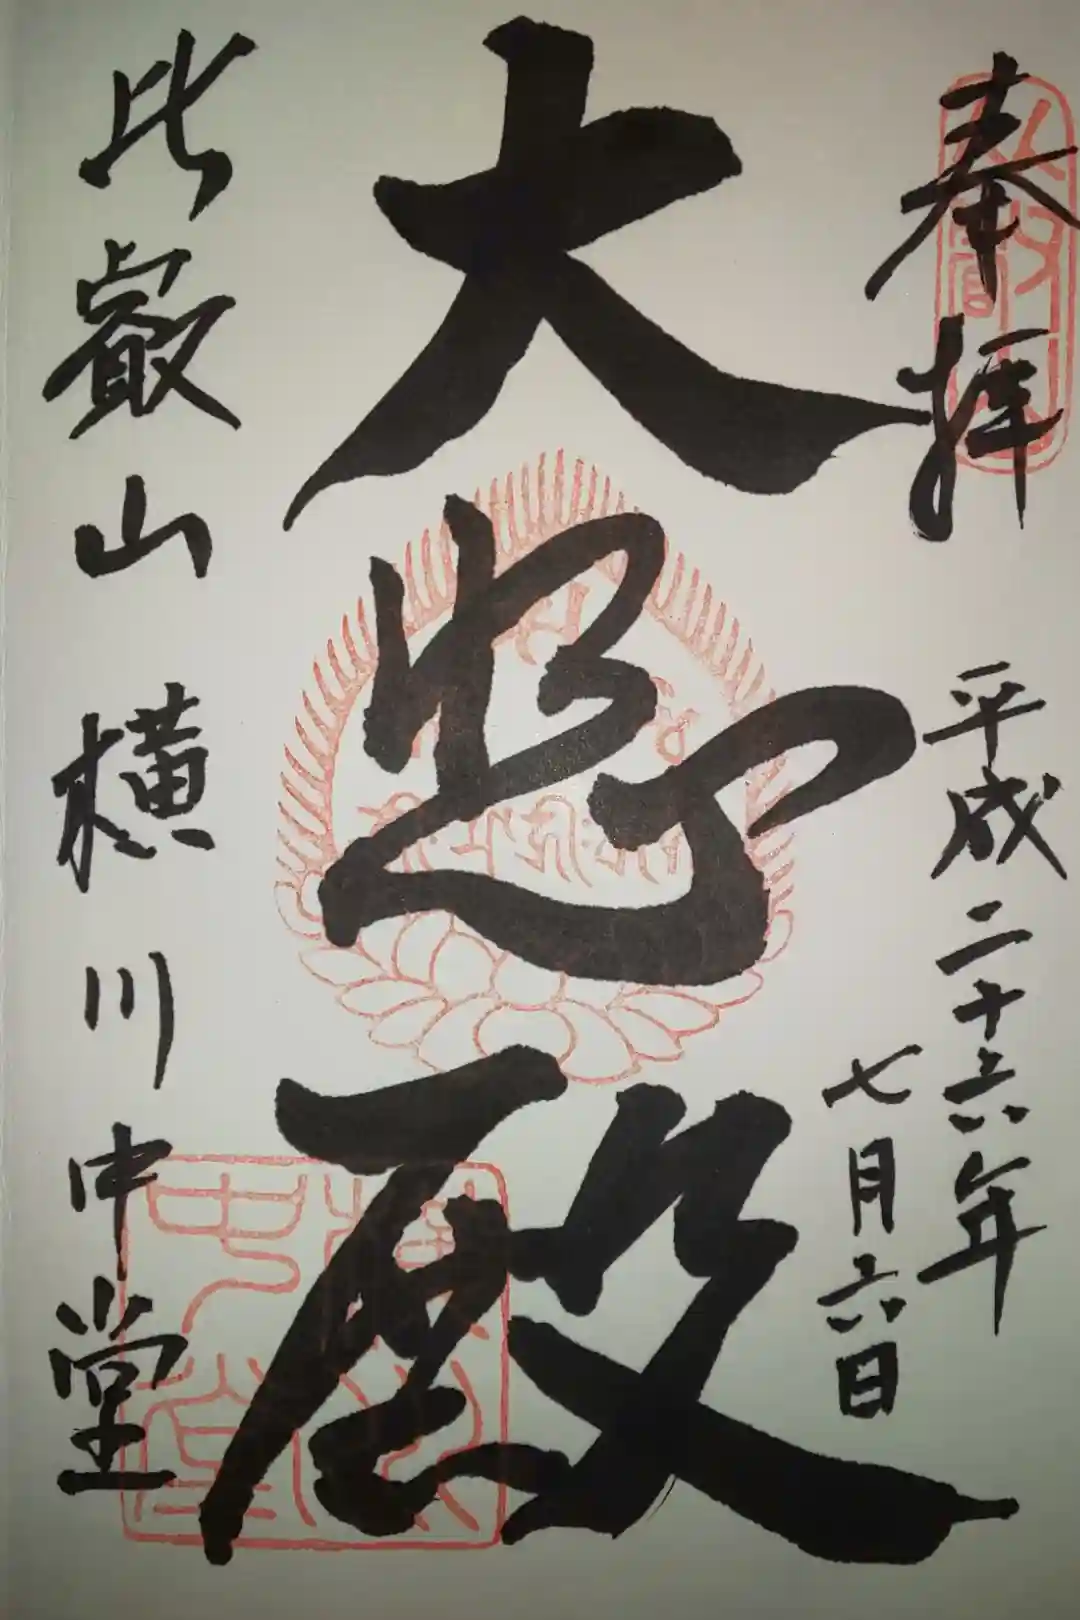 奉拝
平成二十六年
七月六日
大悲殿
比叡山 横川中堂